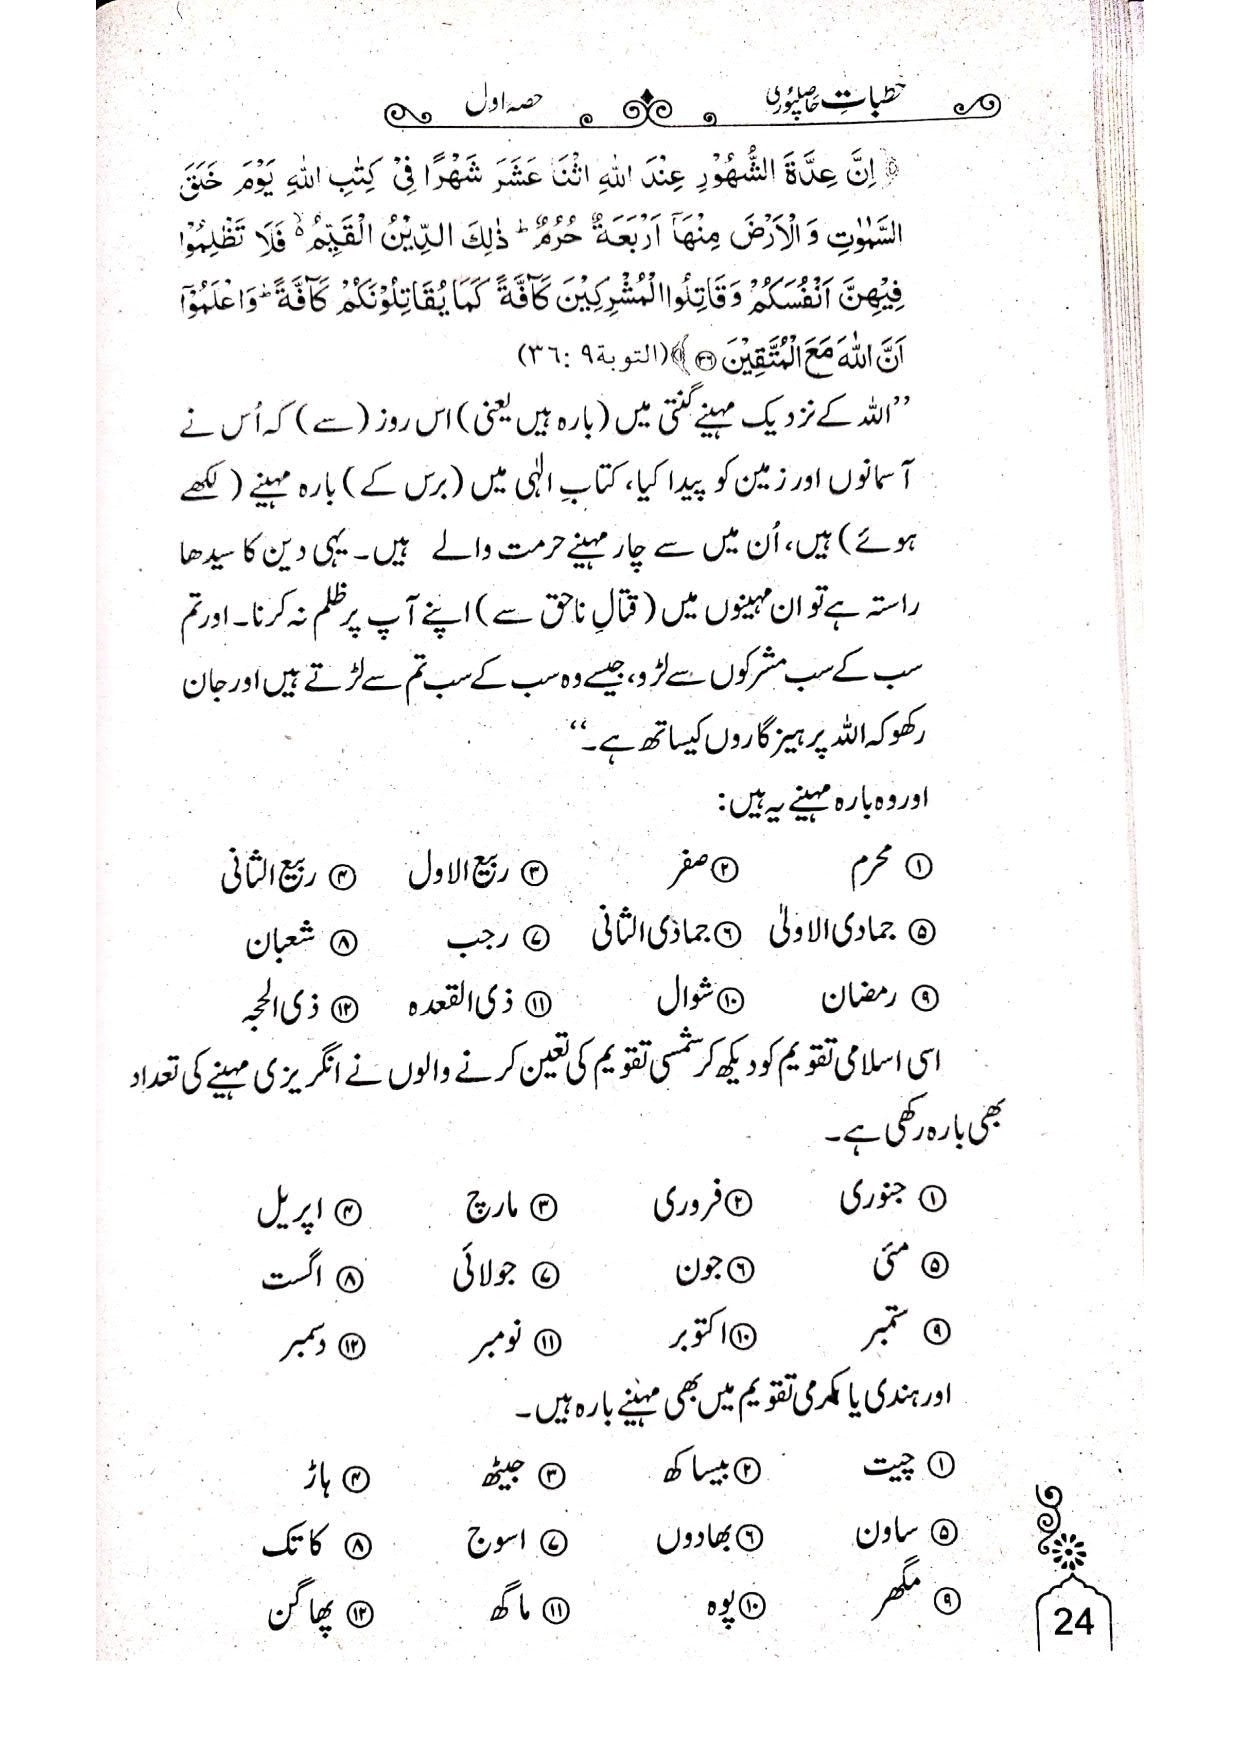 خطباتِ حاصلپوری حصہ اول
﴿ اِنَّ عِدَّةَ الشُّهُوْرِ عِنْدَ اللهِ اثْنَا عَشَرَ شَهْرًا فِيْ كِتٰبِ اللهِ يَوْمَ خَلَقَ
السَّمٰوٰتِ وَ الْاَرْضَ مِنْهَآ اَرْبَعَةٌ حُرُمٌ ؕ ذٰلِكَ الدِّيْنُ الْقَيِّمُ ۙ فَلَا تَظْلِمُوْا
فِيْهِنَّ اَنْفُسَكُمْ وَ قَاتِلُوا الْمُشْرِكِيْنَ كَآفَّةً كَمَا يُقَاتِلُوْنَكُمْ كَآفَّةً ؕ وَ اعْلَمُوْۤا
اَنَّ اللهَ مَعَ الْمُتَّقِيْنَ ﴿۳۶﴾ ﴾ (التوبة ۹ :۳٦)
’’اللہ کے نزدیک مہینے گنتی میں (بارہ ہیں یعنی) اس روز (سے) کہ اُس نے
آسمانوں اور زمین کو پیدا کیا، کتابِ الٰہی میں (برس کے) بارہ مہینے (لکھے
ہوئے) ہیں، اُن میں سے چار مہینے حرمت والے ہیں۔ یہی دین کا سیدھا
راستہ ہے تو ان مہینوں میں (قتالِ ناحق سے) اپنے آپ پر ظلم نہ کرنا۔ اور تم
سب کے سب مشرکوں سے لڑو، جیسے وہ سب کے سب تم سے لڑتے ہیں اور جان
رکھو کہ اللہ پرہیز گاروں کیساتھ ہے۔‘‘
اور وہ بارہ مہینے یہ ہیں:
① محرم ② صفر ③ ربیع الاول ④ ربیع الثانی
⑤ جمادی الاولیٰ ⑥ جماذی الثانی ⑦ رجب ⑧ شعبان
⑨ رمضان ⑩ شوال ⑪ ذی القعدہ ⑫ ذی الحجہ
اسی اسلامی تقویم کو دیکھ کر شمسی تقویم کی تعین کرنے والوں نے انگریزی مہینے کی تعداد
بھی بارہ رکھی ہے۔
① جنوری ② فروری ③ مارچ ④ اپریل
⑤ مئی ⑥ جون ⑦ جولائی ⑧ اگست
⑨ ستمبر ⑩ اکتوبر ⑪ نومبر ⑫ دسمبر
اور ہندی یا بکرمی تقویم میں بھی مہینے بارہ ہیں۔
① چیت ② بیساکھ ③ جیٹھ ④ ہاڑ
⑤ ساون ⑥ بھادوں ⑦ اسوج ⑧ کاتک
⑨ مگھر ⑩ پوہ ⑪ ماگھ ⑫ پھاگن
24